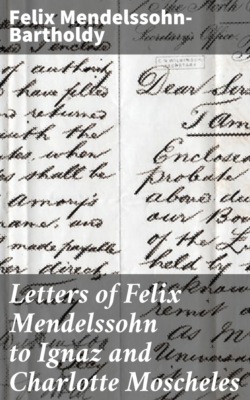 Felix Mendelssohn-
Bartholdy
Secretary's Office
of authority
Dear Sir
I have filed
and returned
I am
with the
Enclose
when
probate
shall be
above du
Amory's
our Bo
name, and
of the L
made payable
held by
her direc
know
remit
as M
Univers
it
Letters of Felix
Mendelssohn
to Ignaz and
Charlotte Moscheles